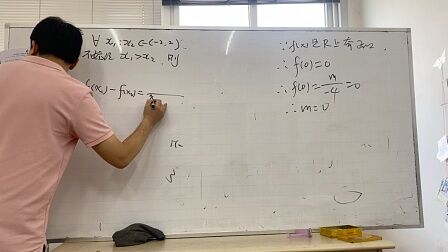 ∀ x₁, x₂ ∈ (-2, 2).
不妨设 x₁ > x₂. 则
f(x₁) - f(x₂) =
∵ f(x) 是 R 上
∴ f(0) = 0
∴ f(0) = n/-4 = 0
∴ m = 0